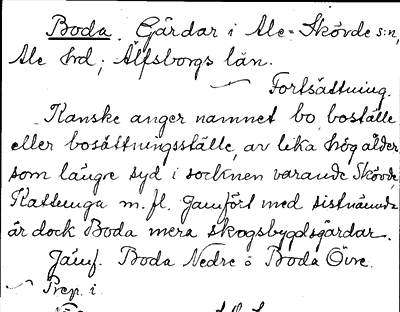 Boda. Gårdar i Ale-Skövde s:n,
Ale hrd; Älfsborgs län.
Fortsättning.
Kanske anger namnet bo, boställe
eller bosättningsställe, av lika hög ålder
som längre syd i socknen varande Skövde,
Kattunga m.fl. Jämfört med sistnämnda
är dock Boda mera skogsbygdsgårdar.
Jämf. Boda Nedre o Boda Övre.
Prep. i.